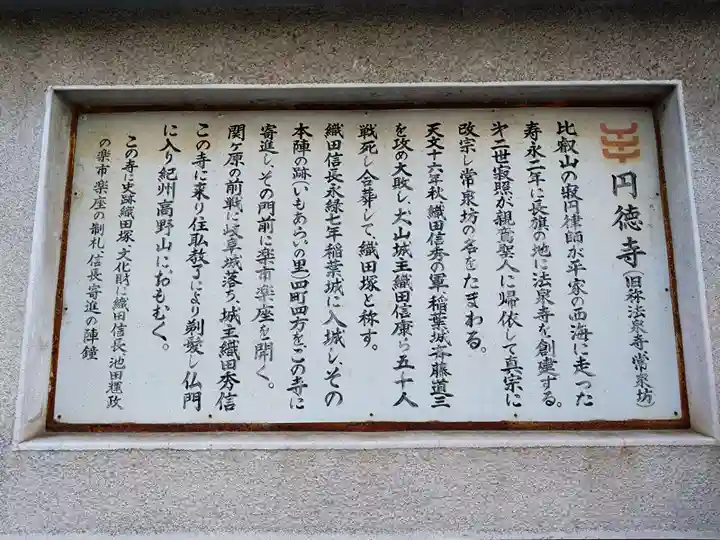 円徳寺（旧称法泉寺常泉坊）
比叡山の寂円律師が平家の西海に走った
寿永二年に長旗の地に法泉寺を創建する。
才二世寂照が親鸞聖人に帰依して真宗に
改宗し常泉坊の名をたまわる。
天文十六年秋、織田信秀の軍、稲葉城斉藤道三
を攻め大敗し、犬山城主織田信康ら五十人
戦死し合葬して、織田塚と称す。
織田信長永禄七年稲葉城に入城し、その
本陣の跡(いもあらいの里)四町四方をこの寺に
寄進し、その門前に楽市楽座を開く。
関ヶ原の前戦に岐阜城落ち、城主織田秀信
この寺に来り住職教了により剃髪し仏門
に入り紀州高野山におもむく。
この寺に史跡織田塚、文化財に織田信長池田輝政
の楽市楽座の制札、信長寄進の陣鐘